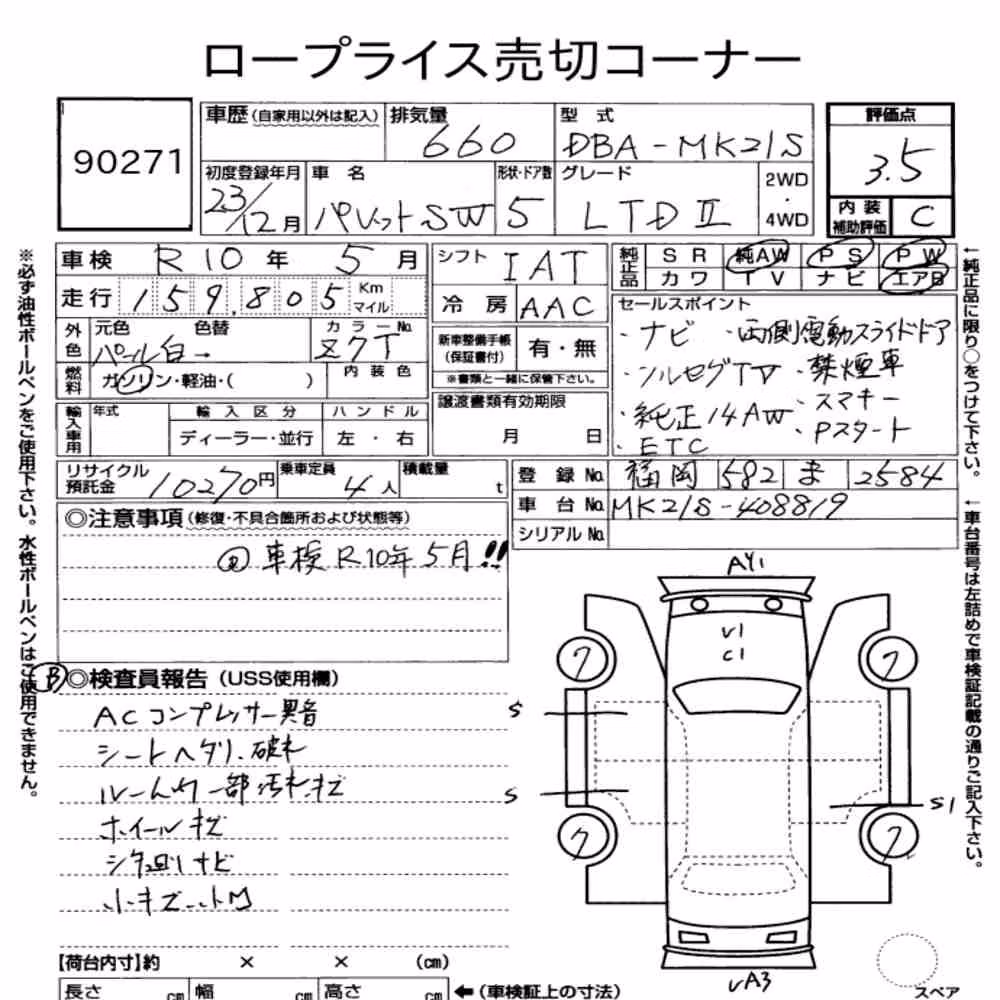 ロープライス売切コーナー
90271
車歴(自家用以外は記入) 排気量 660 型式 DBA-MK21S 評価点 3.5
初度登録年月 23/12月 車名 パレットSW 形状・ドア数 5 グレード LTDⅡ 2WD・4WD
内装補助評価 C
車検 R10年 5月 シフト IAT 純正品 SR 純AW PS PW
カワ TV ナビ エアB
走行 159,805 Km マイル 冷房 AAC
セールスポイント
・ナビ ・両側電動スライドドア
・フルセグTV ・禁煙車
・純正14AW ・スマキー
・ETC ・Pスタート
外色 元色 パール白 → 色替 カラーNo. Z7T
新車整備手帳(保証書付) 有・無
※書類と一緒に保管下さい。
燃料 ガソリン・軽油・( ) 内装色
輸入車用 年式 輸入区分 ディーラー・並行 ハンドル 左・右
譲渡書類有効期限 月 日
リサイクル預託金 10270円 乗車定員 4人 積載量 t
登録No. 福岡 582 ま 2584
車台No. MK21S-408819
シリアルNo.
◎注意事項(修復・不具合箇所および状態等)
車検R10年5月!!
B
◎検査員報告(USS使用欄)
ACコンプレッサー異音
シートヘタリ、破れ
ルーム内一部汚れキズ
ホイールキズ
小キズ、小凹
AY1
V1
C1
ワ ワ
S
S S1
ワ ワ
VA3
スペア
【荷台内寸】約 × × (cm)
長さ cm 幅 cm 高さ cm ←(車検証上の寸法)
※必ず油性ボールペンをご使用下さい。水性ボールペンはご使用できません。
←純正品に限り○をつけて下さい。
←車台番号は左詰めで車検証記載の通りご記入下さい。